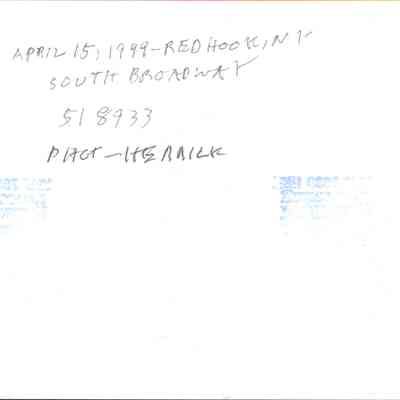 APRIL 15, 1999 - RED HOOK, NY
SOUTH BROADWAY
518933